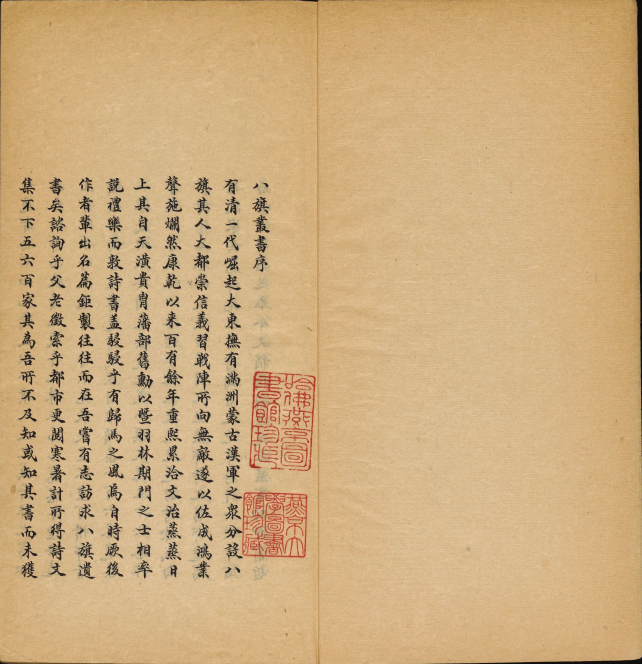 八旗叢書序
有清一代崛起大東撫有滿洲蒙古漢軍之衆分設八
旗其人大都崇信義習戰陣所向無敵遂以佐成鴻業
聲施爛然康乾以来百有餘年重熙累洽文治蒸蒸日
上其自天潢貴胄藩部舊勳以暨羽林期門之士相率
說禮樂而敦詩書蓋駸駸乎有歸馮之風焉自時厥後
作者輩出名篇鉅製往往而在吾嘗有志訪求八旗遺
書矣諮詢乎父老徵索乎都市更閱寒暑計所得詩文
集不下五六百家其為吾所不及知或知其書而未獲
哈佛燕京圖書館珍藏
燕京大學圖書館珍藏